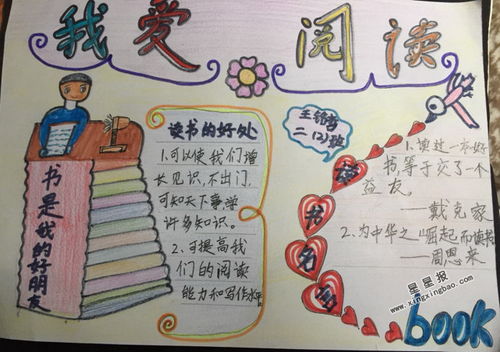 我爱阅读
王
二(2)班
读书的好处
1.可以使我们增
长见识,不出门,
可知天下事,学
许多知识。
2.可提高我
们的阅读
能力和写作水平
书是我的好朋友
读书名句
1.读过一本好
书,等于交了一个
益友。
——戴克家
2.为中华之崛起而读书
——周恩来
book
星星报
www.xingxingbao.com